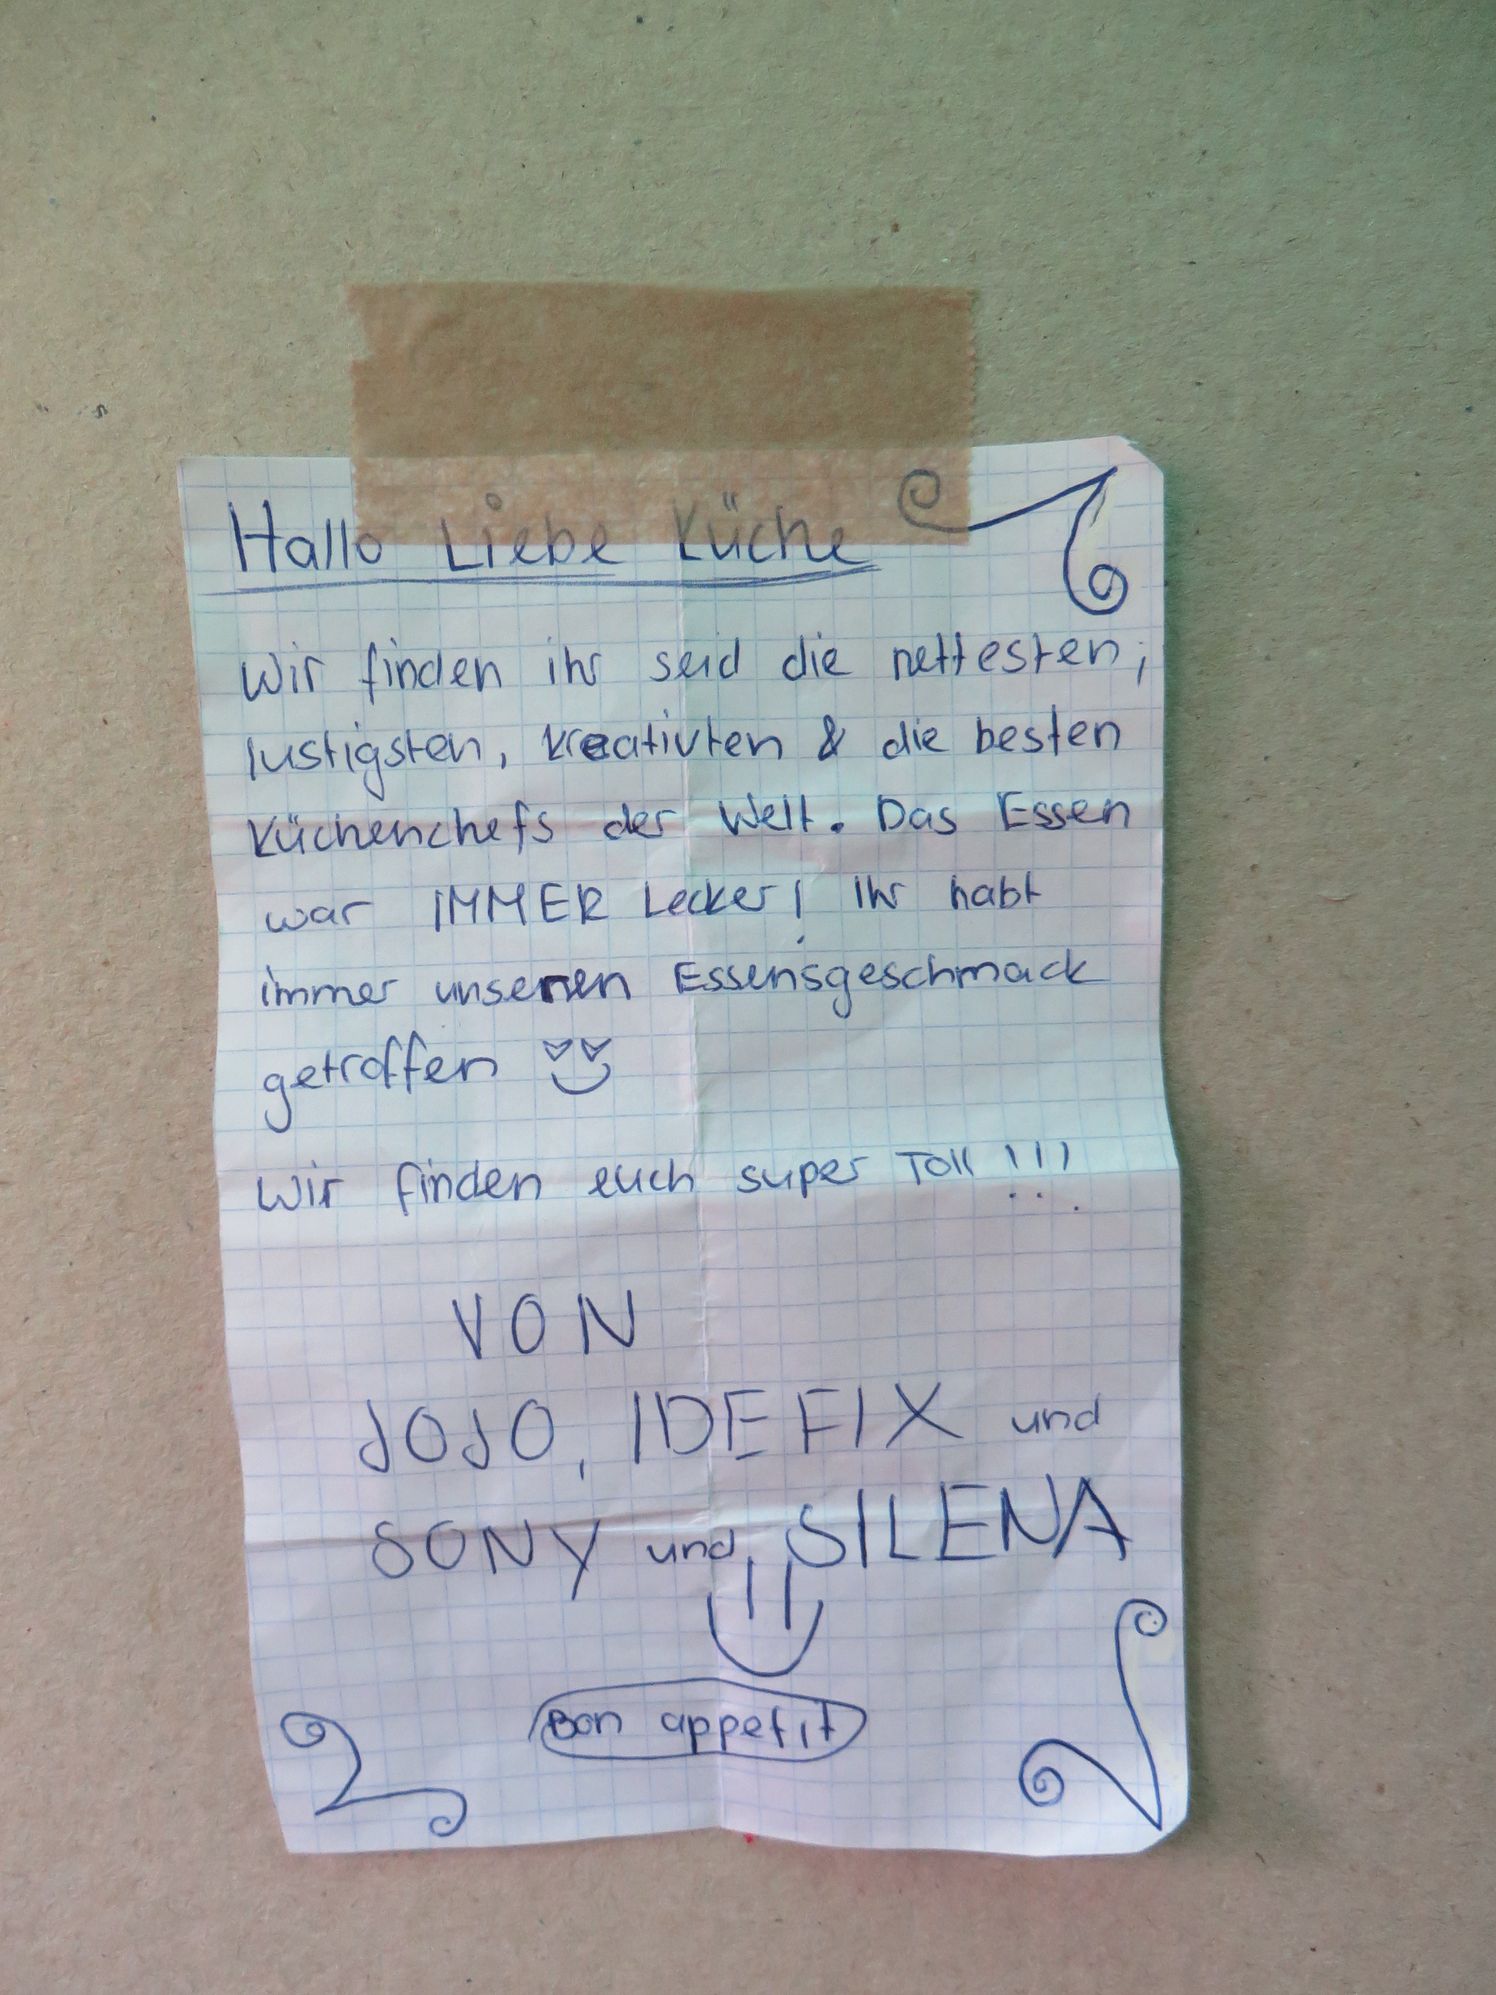 Hallo Liebe Küche
Wir finden ihr seid die nettesten,
lustigsten, kreativten & die besten
Küchenchefs der Welt. Das Essen
war IMMER Lecker! Ihr habt
immer unseren Essensgeschmack
getroffen
Wir finden euch super Toll!!!
VON
JOJO, IDEFIX und
SONY und SILENA
Bon appetit